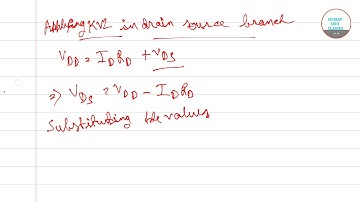 Applying KVL in drain source branch
V_DD = I_D R_D + V_DS
⇒ V_DS = V_DD - I_D R_D
Substituting the values